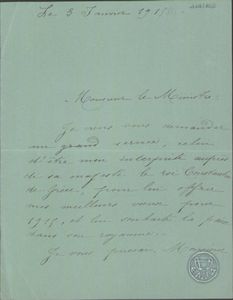 Le 3 Janvier 1915
Monsieur le Ministre
Je viens vous demander
un grand service, celui
d'être mon interprète auprès
de sa majesté le roi Constantin
de Grèce, pour lui offrir
mes meilleurs vœux pour
1915, et lui souhaite la paix
dans son royaume.
Je vous